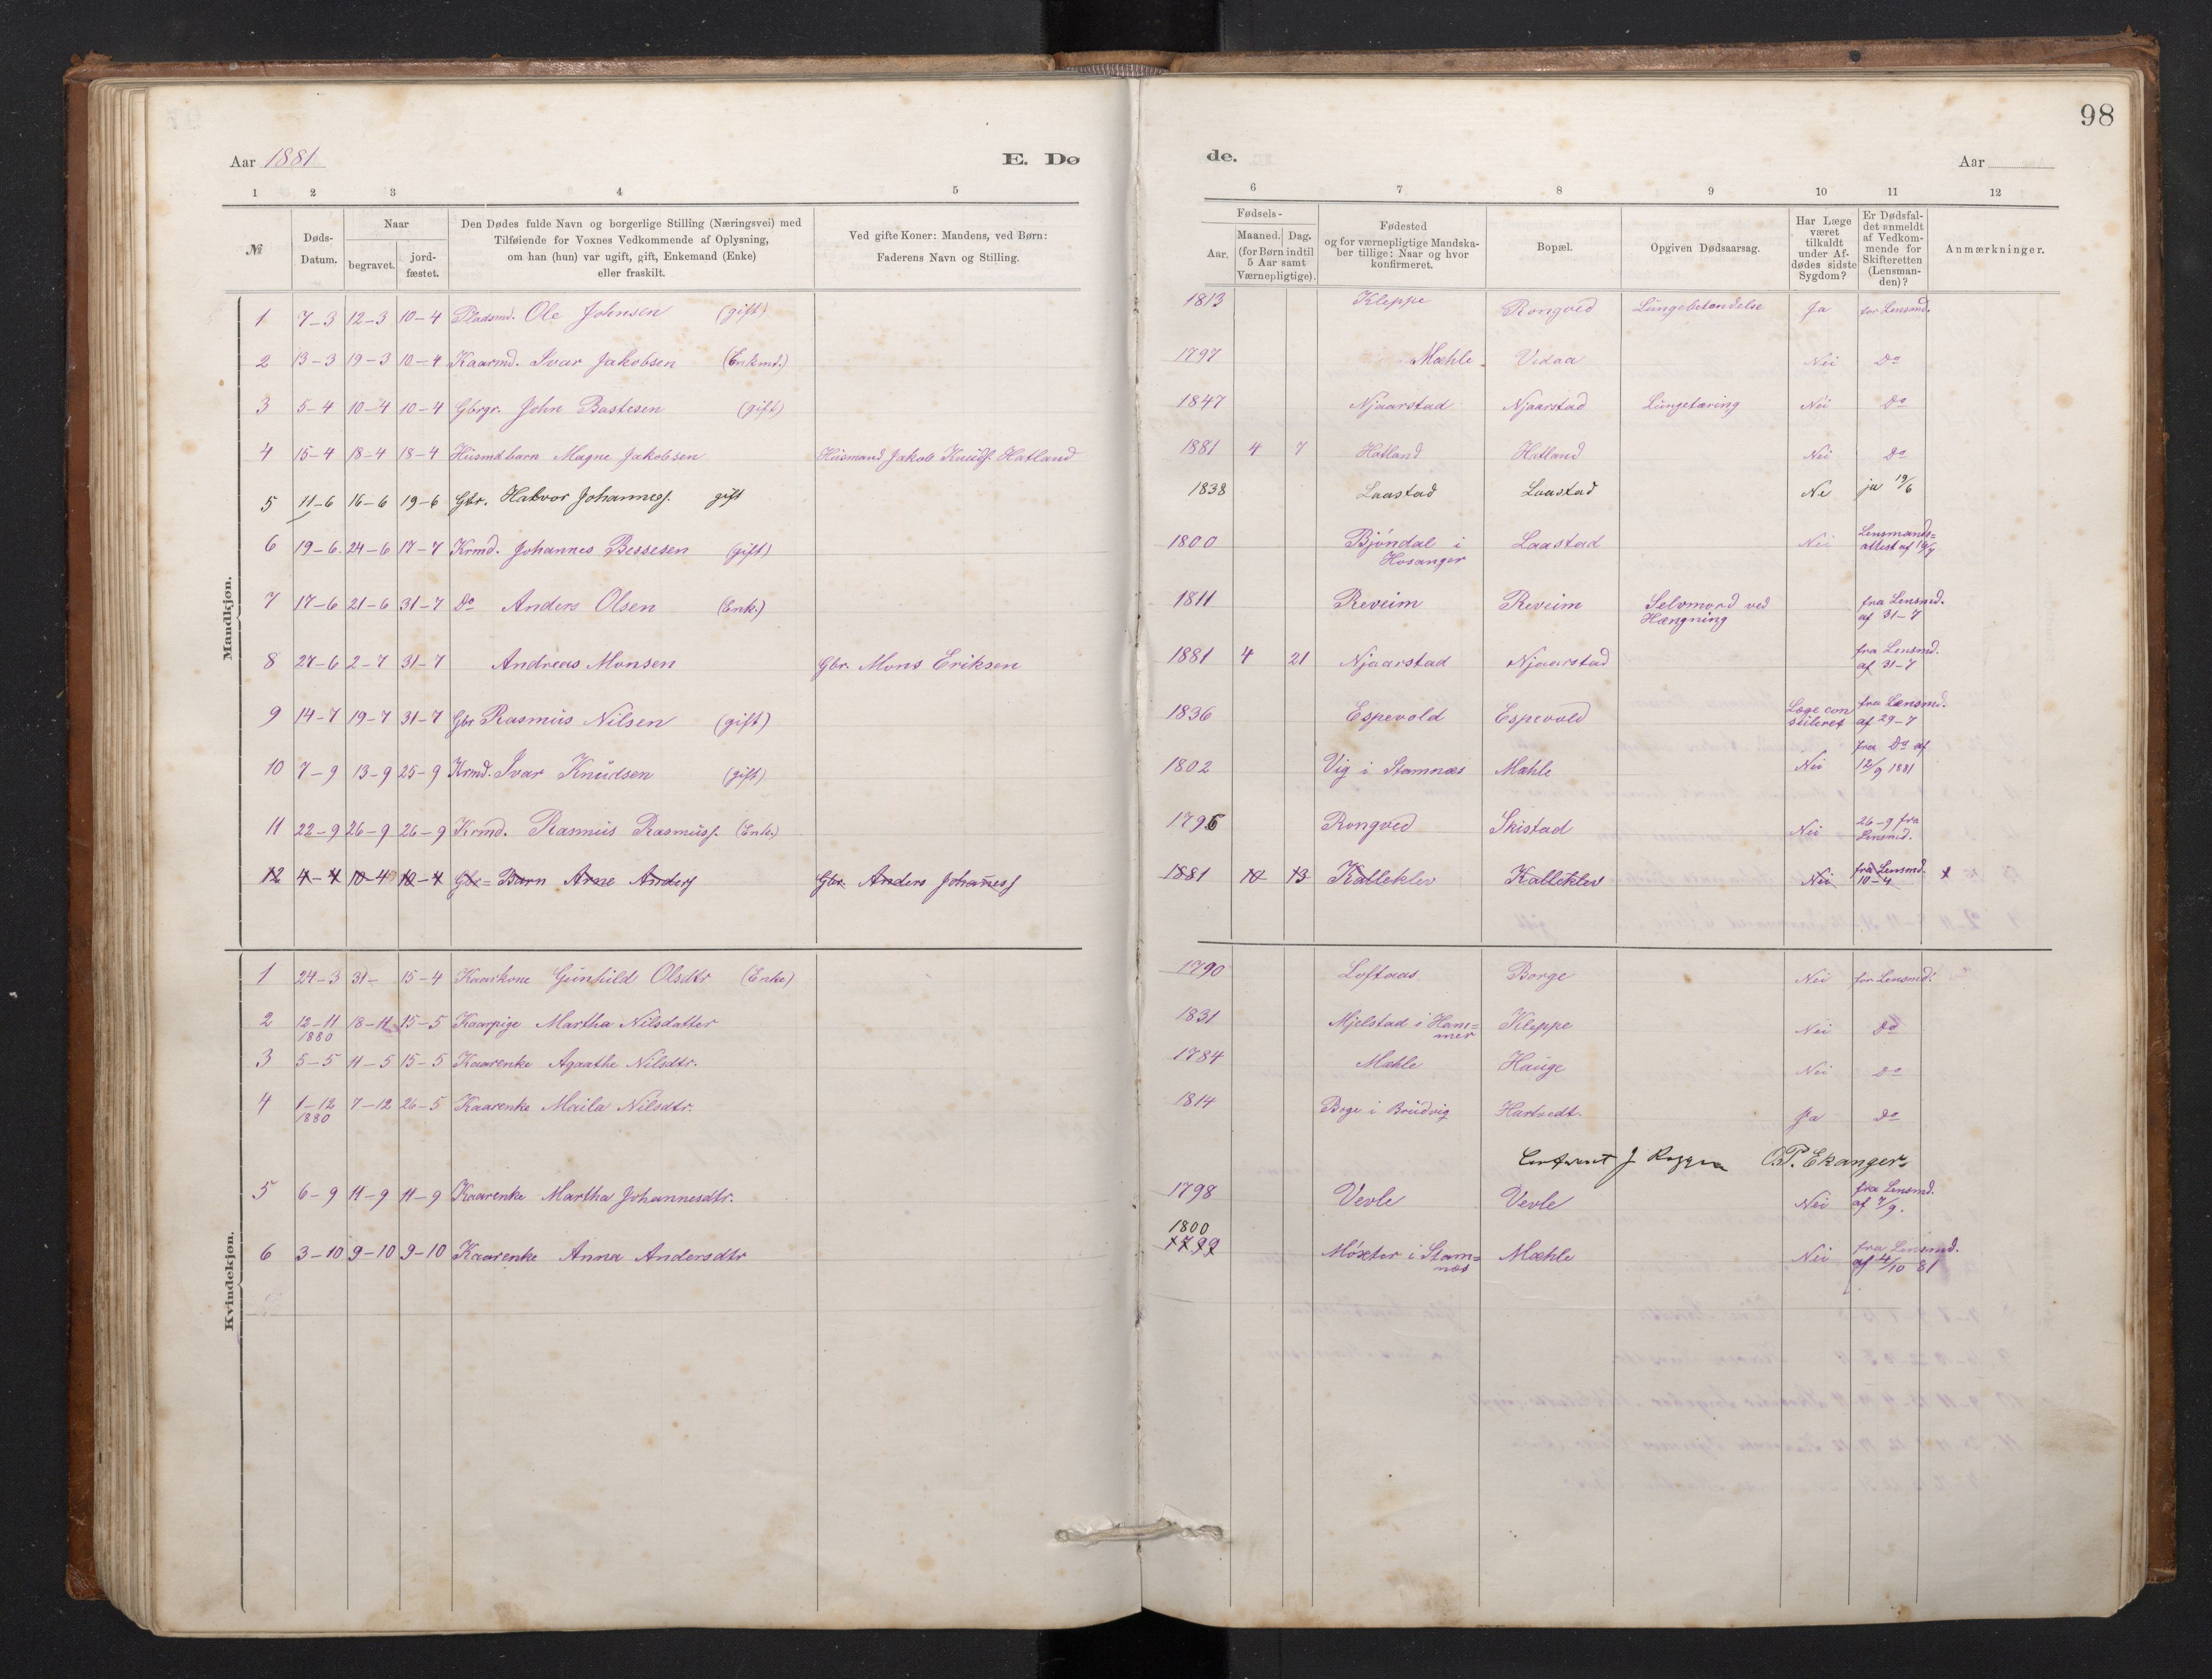 98
Aar 1881 E. Dø de. Aar
1 2 3 4 5 6 7 8 9 10 11 12
№ Døds-Datum. Naar begravet. jord-fæstet. Den Dødes fulde Navn og borgerlige Stilling (Næringsvei) med Tilføiende for Voxnes Vedkommende af Oplysning, om han (hun) var ugift, gift, Enkemand (Enke) eller fraskilt. Ved gifte Koner: Mandens, ved Børn: Faderens Navn og Stilling. Fødsels- Aar. Maaned. Dag. (for Børn indtil 5 Aar samt Værnepligtige). Fødested og for værnepligtige Mandskaber tillige: Naar og hvor konfirmeret. Bopæl. Opgiven Dødsaarsag. Har Læge været tilkaldt under Afdødes sidste Sygdom? Er Dødsfaldet anmeldt af Vedkommende for Skifteretten (Lensmanden)? Anmærkninger.
Mandkjøn.
1 7-3 12-3 10-4 Pladsmd. Ole Johnsen (gift) 1813 Kleppe Rongved Lungebetændelse Ja for Lensmd.
2 13-3 19-3 10-4 Kaarmd. Ivar Jakobsen (Enkmd.) 1797 Mæhle Vidaa Nei Do
3 5-4 10-4 10-4 Gbrgr. John Bastesen (gift) 1847 Njaarstad Njaarstad Lungetæring Nei Do
4 15-4 18-4 18-4 Husmdbarn Magne Jakobsen Husmand Jakob Knuds. Hatland 1881 4 7 Hatland Hatland Nei Do
5 11-6 16-6 19-6 Gbr. Halvor Johannes. gift 1838 Laastad Laastad Ne ja 19/6
6 19-6. 24-6 17-7 Krmd. Johannes Bessesen (gift) 1800 Bjóndal i Hosanger Laastad Nei Lensmands=attest af 14/7
7 17-6 21-6 31-7 Do Anders Olsen (Enk.) 1811 Reveim Reveim Selvmord ved Hængning fra Lensmd. af 31-7
8 27-6 2-7 31-7 Andreas Monsen Gbr. Mons Eriksen 1881 4 21 Njaarstad Njaarstad fra Lensmd. af 31-7
9 14-7 19-7 31-7 Gbr Rasmus Nilsen (gift) 1836 Espevold Espevold Læge con fra Lænsmd. af 29-7
10 7-9 13-9 25-9 Krmd. Ivar Knudsen (gift) 1802 Vig i Stamnæs Mæhle Nei fra Do af 12/9 1881
11 22-9 26-9 26-9 Krmd. Rasmus Rasmuss. (Enk.) 1795 Rongved Skistad Nei 26-9 fra Lensmd.
12 4-4 10-4 10-4 Gbr= Barn Arne Anders Gbr. Anders Johaness 1881 10 13 Kalleklev Kalleklev Nei fra Lensmd. 10-4
Kvindekjøn.
1 24-3 31- 15-4 Kaarkone Gunhild Olsdtr (Enke) 1790 Loftaas Borge Nei for Lensmd.
2 12-11 1880 18-11 15-5 Kaarpige Martha Nilsdatter 1831 Mjelstad i Ham=mer Kleppe Nei Do
3 5-5 11-5 15-5 Kaarenke Agaathe Nilsdtr. 1784 Mæhle Hauge Nei Do
4 1-12 1880 7-12 26-5 Kaarenke Maila Nilsdtr. 1814 Boge i Brudvig Hartvedt. Ja Do
O.P. Ekanger
5 6-9 11-9 11-9 Kaarenke Martha Johannesdtr. 1798 Vevle Vevle Nei fra Lensmd. af 7/9.
6 3-10 9-10 9-10 Kaarenke Anna Andersdtr 1800 1799 Móxter i Stam=næs Mæhle Nei fra Lensmd. af 4/10 81